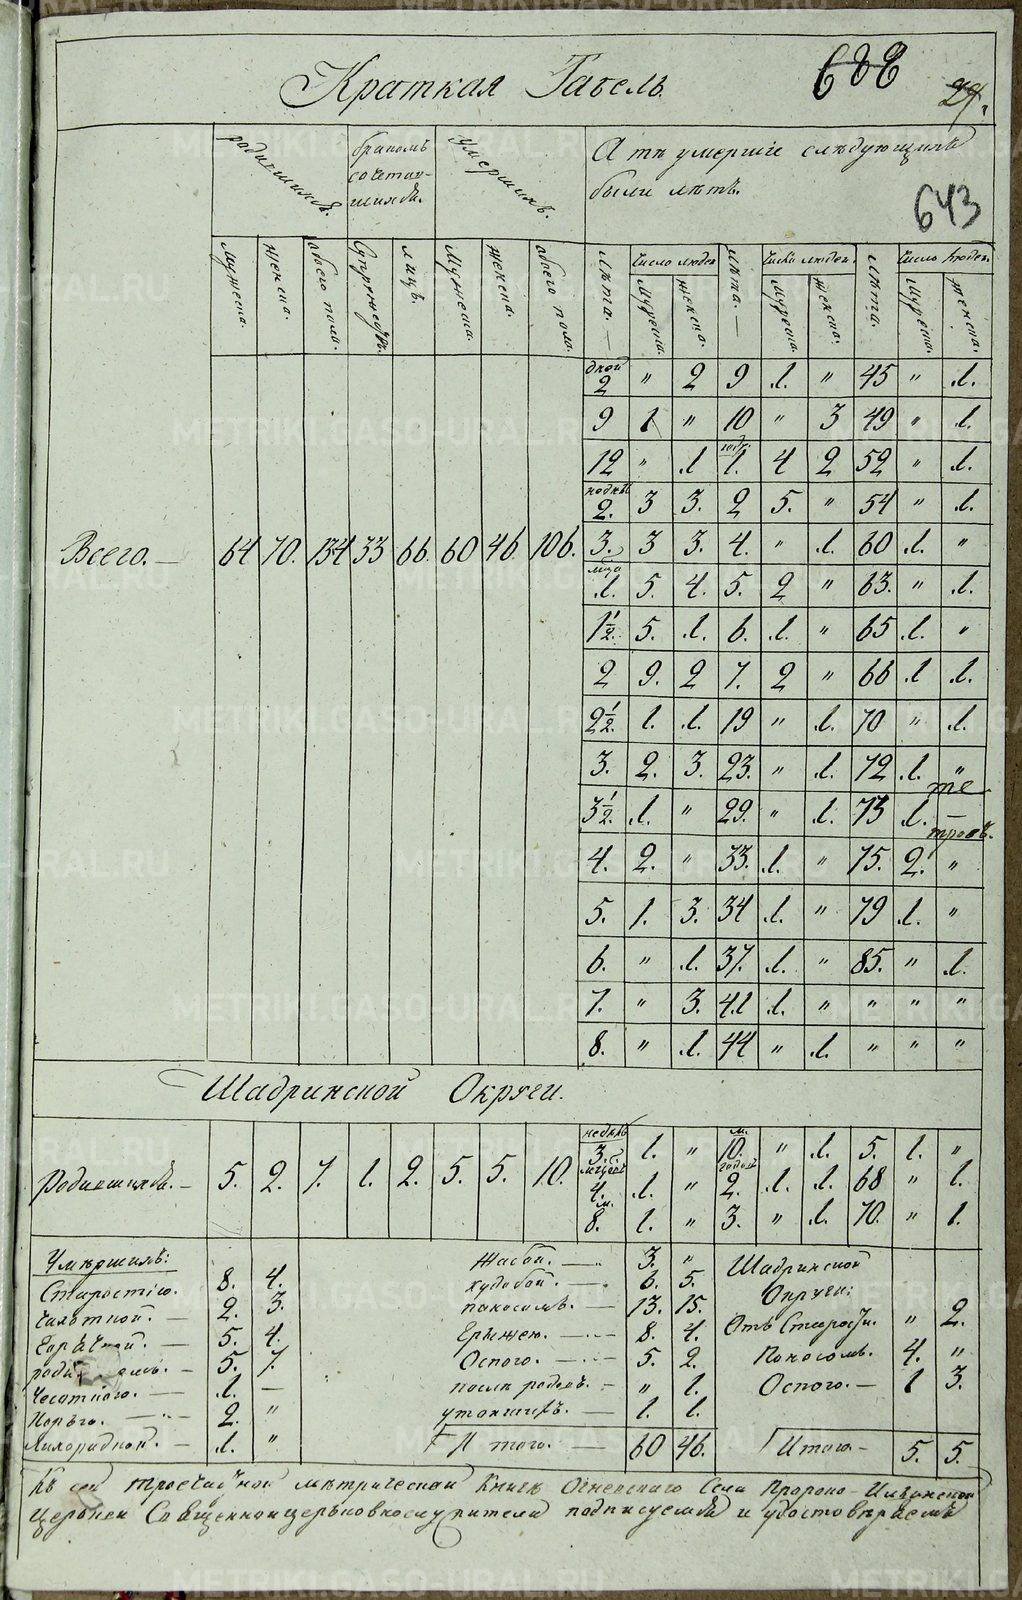 Краткая Табель.
688
29.
643
родившихся.
бракомъ сочетав-
шихся.
умершихъ.
А тѣ умершіе слѣдующихъ
были лѣтъ.
мужеска. женска. обоего пола. Супружествъ. лицъ. Мужеска. женска. обоего пола.
лѣта. Число людей мужеска. женска. лѣта. Число людей. мужеска. женска. лѣта. Число людей. мужеска. женска.
дней 2 " 2 9 1. " 45 " 1.
9 1 " 10 " 3 49 " 1.
12 " 1 годъ 1. 4 2 52 " 1.
недѣль 2. 3 3. 2 5. " 54 " 1.
Всего. 64 70. 134 33 66. 60 46 106. 3. 3 3. 4. " 1. 60 1. "
мца 1. 5. 4. 5. 2 " 63. " 1.
1 1/2. 5. 1. 6. 1. " 65 1. "
2 9. 2 7. 2 " 66 1 1.
2 1/2. 1. 1. 19 " 1. 70 " 1.
3. 2. 3. 23. " 1. 72 1. "
3 1/2. 1. " 29. " 1. 73 1. —
4. 2. " 33. 1. " 75. 2. "
5. 1. 3. 34 1. " 79 1. "
6. " 1. 37. 1. " 85. " 1.
7. " 3. 41 1. " " " "
8. " 1. 44 " 1. " " "
Шадринской Округи.
Родившихся. 5. 2. 7. 1. 2. 5. 5. 10. недѣль 3. 1. " м. 10. " 1. 5. 1. "
4. 1. " годовъ 2. 1. 1. 68 " 1.
м. 8. 1. " 3. " 1. 70. " 1.
Умершихъ:
Старостію. 8. 4.
2. 3.
5. 4.
5. 7.
1. —
2. "
Лихорадкой. 1. "
Жабой. 3. "
худобой. 6. 5.
поносомъ. 13. 15.
Грыжею. 8. 4.
Оспою. 5. 2.
послѣ родовъ. " 1.
утоншихъ. 1. 1.
Итого. 60 46.
Шадринской
Округи:
Отъ Старости. " 2.
Поносомъ. 4. "
Оспою. 1 3.
Итого 5. 5.
Къ сей троечастной метрической Книгѣ Огневского Села Пророко-Ильинской
Церкви Священноцерковнослужители подписуемся и удостовѣряемъ